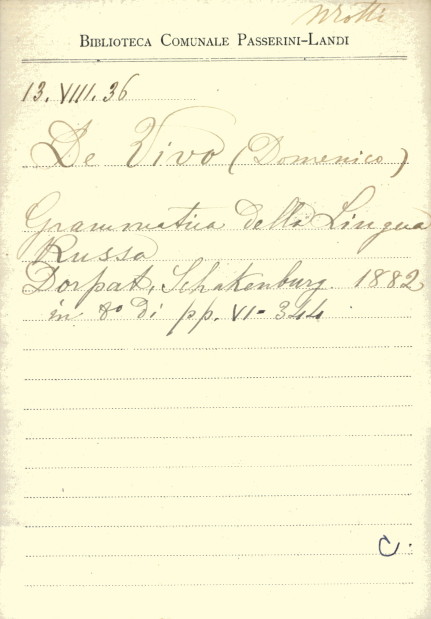 BIBLIOTECA COMUNALE PASSERINI-LANDI
13. VIII. 36
De Vivo (Domenico)
Grammatica della Lingua
Russa
Dorpat, Schakenburg. 1882
in 8° di pp. VI-344
C.